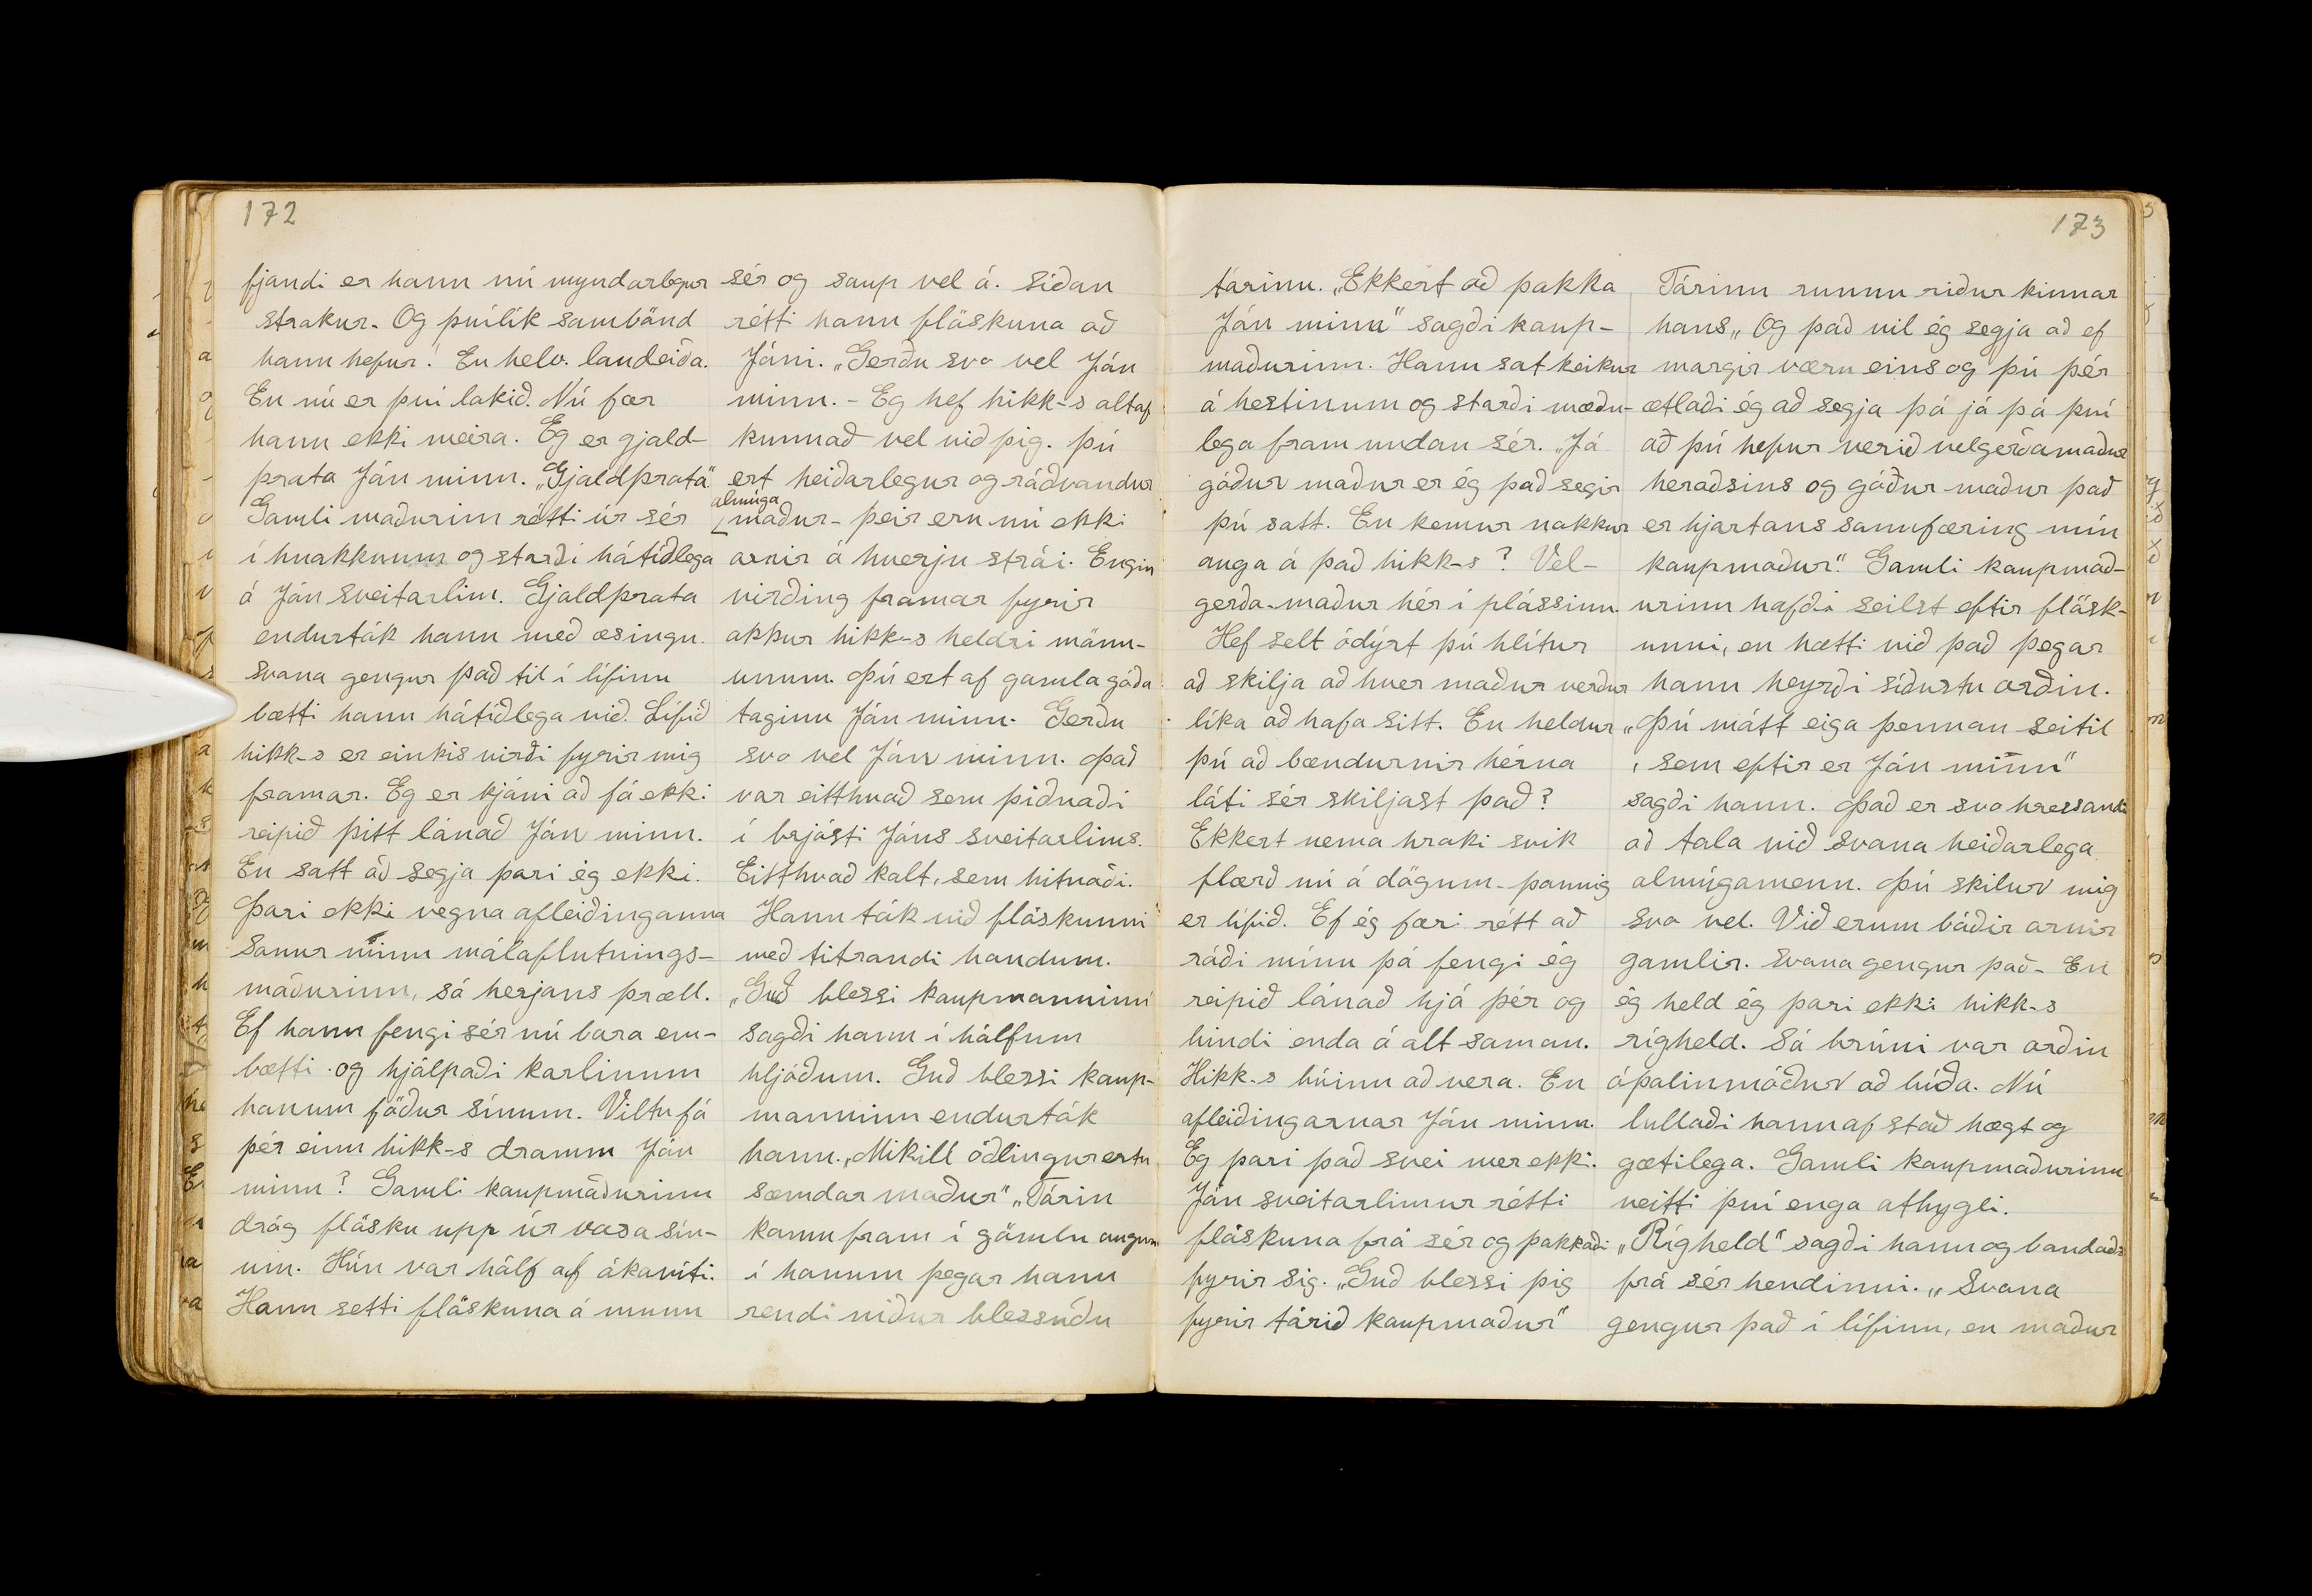 172
fjandi er hann nú myndarlegur
strákur. Og þvílík sambönd
hann hefur! En helv. landeiða.
En nú er því lokið. Nú fær
hann ekki meira. Ég er gjald-
þrota Jón minn. „Gjaldþrota"
Gamli maðurinn rétti úr sér
í hnakknum og starði hátíðlega
á Jón sveitarlim. Gjaldþrota
endurtók hann með æsingu.
Svona gengur það til í lífinu
bætti hann hátíðlega við. Lífið
hikk-s er einkis virði fyrir mig
framar. Eg er kjáni að fá ekki
reipið þitt lánað Jón minn.
En satt að segja þori ég ekki.
Þori ekki vegna afleiðinganna
Sonur minn málaflutnings-
maðurinn, sá herjans þræll.
Ef hann fengi sér nú bara em-
bætti og hjálpaði karlinum
honum föður sínum. Viltu fá
þér einn hikk-s dramm Jón
minn? Gamli kaupmaðurinn
dróg flösku upp úr vasa sín-
um. Hún var hálf af ákavíti.
Hann setti flöskuna á munn
sér og saup vel á. Síðan
rétti hann flöskuna að
Jóni. „Gerðu svo vel Jón
minn. - Eg hef hikk-s altaf
kunnað vel við þig. Þú
ert heiðarlegur og ráðvandur
almúga
maður - þeir eru nú ekki
ornir á hverju strái. Engin
virðing framar fyrir
okkur hikk-s heldri mönn-
unum. Þú ert af gamla góða
taginu Jón minn. Gerðu
svo vel Jón minn. Það
var eitthvað sem þiðnaði
í brjósti Jóns sveitarlims.
Eitthvað kalt, sem hitnaði.
Hann tók við flöskunni
með titrandi höndum.
„Guð blessi kaupmanninn"
sagði hann í hálfum
hljóðum. Guð blessi kaup-
manninn endurtók
hann. „Mikill öðlingur ertu
sómdar maður" „Tárin
komu fram í gömlu augun
í honum þegar hann
rendi niður blessuðu
173
tárinu. „Ekkert að þakka
Jón minn" sagði kaup-
maðurinn. Hann sat keikur
á hestinum og starði mæðu-
lega fram undan sér. „Já
góður maður er ég það segir
þú satt. En kemur nokkur
auga á það hikk-s? Vel-
gerða-maður hér í plássinu.
Hef selt ódýrt þú hlítur
að skilja að hver maður verður
líka að hafa sitt. En heldur
þú að bændurnir hérna
láti sér skiljast það?
Ekkert nema hroki svik
flærð nú á dögum - þannig
er lífið. Ef ég færi rétt að
ráði mínu þá fengi ég
reipið lánað hjá þér og
bindi enda á alt saman.
Hikk-s búinn að vera. En
afleiðingarnar Jón minn.
Eg þori það svei mer ekki.
Jón sveitarlimur rétti
flöskuna frá sér og þakkaði
fyrir sig. „Guð blessi þig
fyrir tárið kaupmaður"
Tárinn runnu niður kinnar
hans „Og það vil ég segja að ef
margir væru eins og þú þér
ætlaði ég að segja þá já þá því
að þú hefur verið velgerðamaður
heraðsins og góður maður það
er hjartans sannfæring mín
kaupmaður". Gamli kaupmað-
urinn hafði seilst eftir flösk-
unni, en hætti við það þegar
hann heyrði síðustu orðin.
„Þú mátt eiga þennan seitil
, sem eftir er Jón minn"
sagði hann. Það er svo hressandi
að tala við svona heiðarlega
almúgamenn. Þú skilur mig
svo vel. Við erum báðir ornir
gamlir. Svona gengur það - En
ég held ég þori ekki hikk-s
rígheld. Sá brúni var orðin
óþolinmóður að bíða. Nú
lullaði hann af stað hægt og
gætilega. Gamli kaupmaðurinn
veitti því enga athygli.
„Rígheld" sagði hann og bandaði
frá sér hendinni. „Svona
gengur það í lífinu, en maður